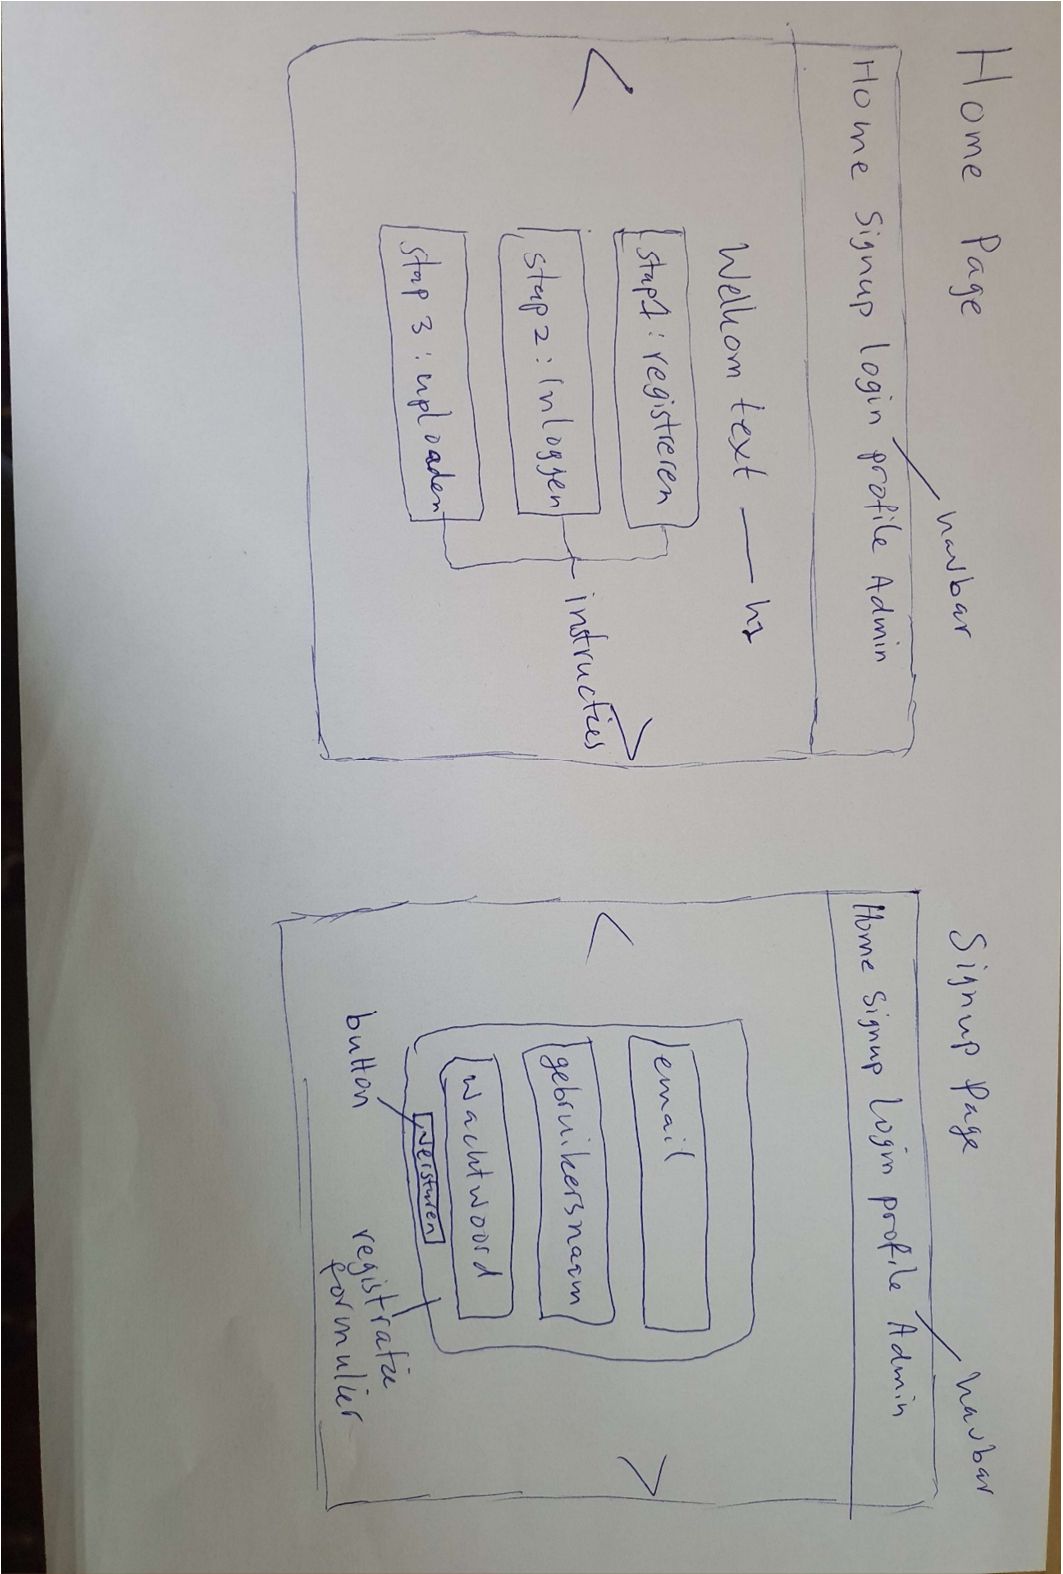 Home Page
navbar
Home Signup login profile Admin
Welkom text — h1
stap 1 : registreren
stap 2 : inloggen
stap 3 : uploaden
instructies
Signup Page
navbar
Home Signup Login profile Admin
email
gebruikersnaam
wachtwoord
versturen
button
registratie
formulier